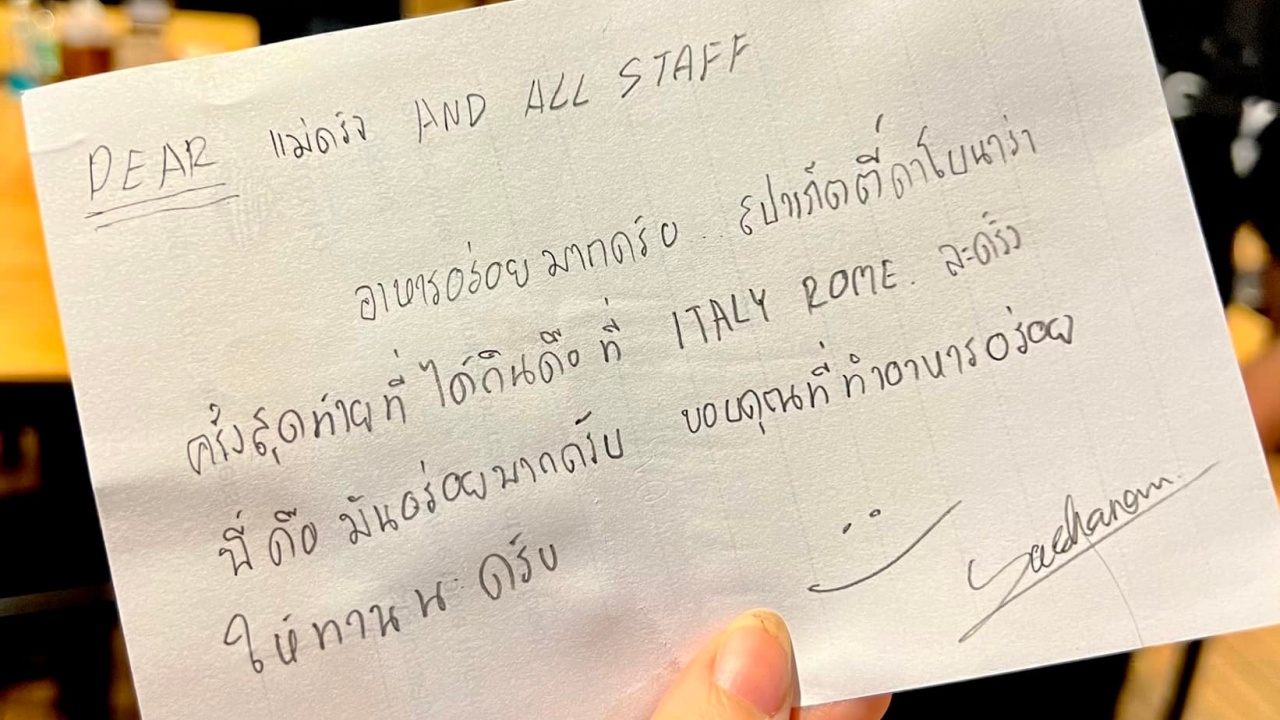 DEAR แม่ครัว AND ALL STAFF
อาหารอร่อยมากครับ .. สปาเก็ตตี้คาโบนาร่า
ครั้งสุดท้ายที่ได้กินคือที่ ITALY ROME. ละครั้ง
นี้คือ มันอร่อยมากครับ ขอบคุณที่ทำอาหารอร่อย
ให้ทานนะครับ